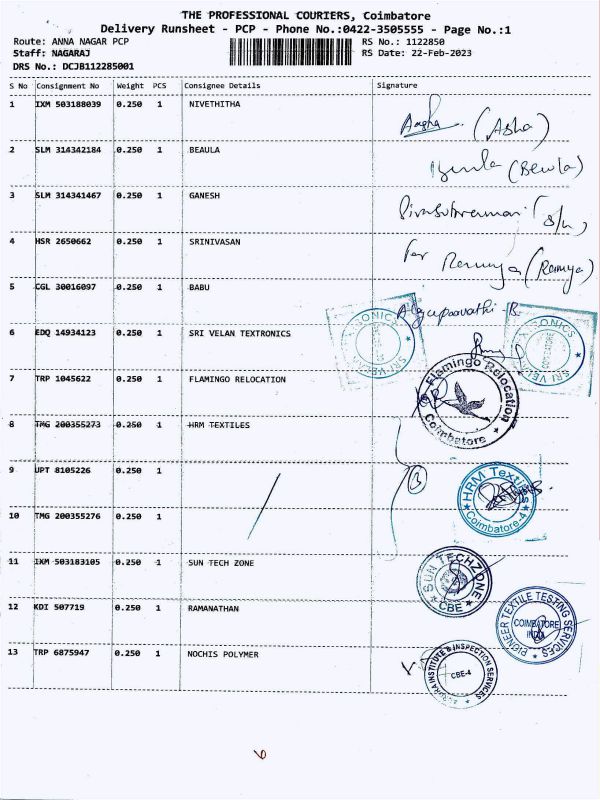 THE PROFESSIONAL COURIERS, Coimbatore
Delivery Runsheet - PCP - Phone No.:0422-3505555 - Page No.:1
Route: ANNA NAGAR PCP
RS No.: 1122850
Staff: NAGARAJ
RS Date: 22-Feb-2023
DRS No.: DCJB112285001
S No Consignment No Weight PCS Consignee Details Signature
1 IXM 503188039 0.250 1 NIVETHITHA
Aasha (Asha)
2 SLM 314342184 0.250 1 BEAULA
(Bewla)
3 SLM 314341467 0.250 1 GANESH
4 HSR 2650662 0.250 1 SRINIVASAN
For Ramya (Ramya)
5 CGL 30016097 0.250 1 BABU
6 EDQ 14934123 0.250 1 SRI VELAN TEXTRONICS
7 TRP 1045622 0.250 1 FLAMINGO RELOCATION
Flamingo Relocation
Coimbatore
8 TMG 200355273 0.250 1 HRM TEXTILES
9 UPT 8105226 0.250 1
3
HRM Textiles
Coimbatore-4
10 TMG 200355276 0.250 1
11 IXM 503183105 0.250 1 SUN TECH ZONE
SUN TECHZONE
CBE
12 KDI 507719 0.250 1 RAMANATHAN
PIONEER TEXTILE TESTING SERVICES
COIMBATORE
INDIA
13 TRP 6875947 0.250 1 NOCHIS POLYMER
INSTITUTE & INSPECTION SERVICES
CBE-4